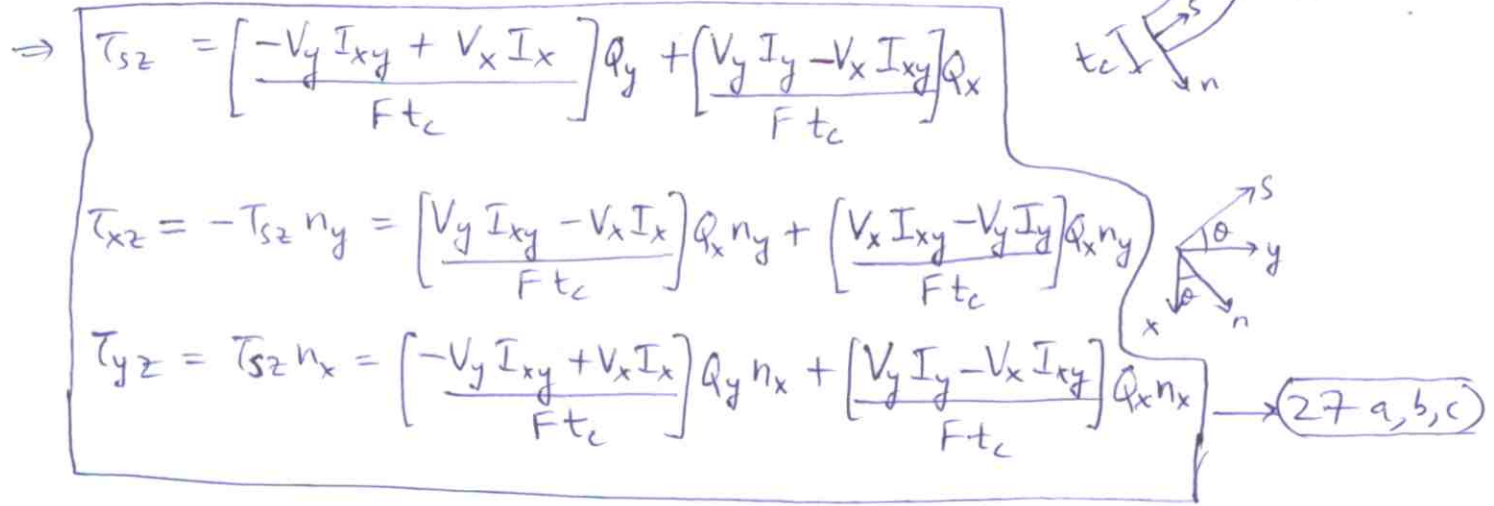 ⇒ τ_sz = [(-V_y I_xy + V_x I_x) / (F t_c)] Q_y + [(V_y I_y - V_x I_xy) / (F t_c)] Q_x
t_c s n
τ_xz = -τ_sz n_y = [(V_y I_xy - V_x I_x) / (F t_c)] Q_x n_y + [(V_x I_xy - V_y I_y) / (F t_c)] Q_x n_y
s θ y θ x n
τ_yz = τ_sz n_x = [(-V_y I_xy + V_x I_x) / (F t_c)] Q_y n_x + [(V_y I_y - V_x I_xy) / (F t_c)] Q_x n_x → 27 a, b, c)